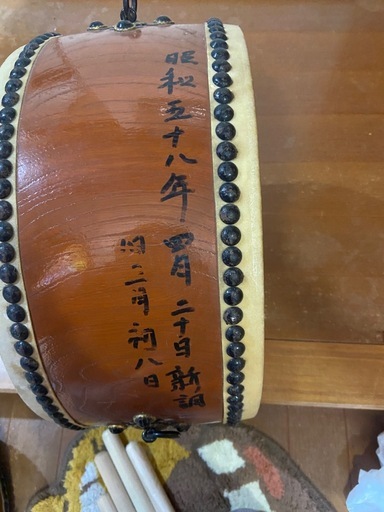 昭和五十八年四月二十日新調
旧二月初八日